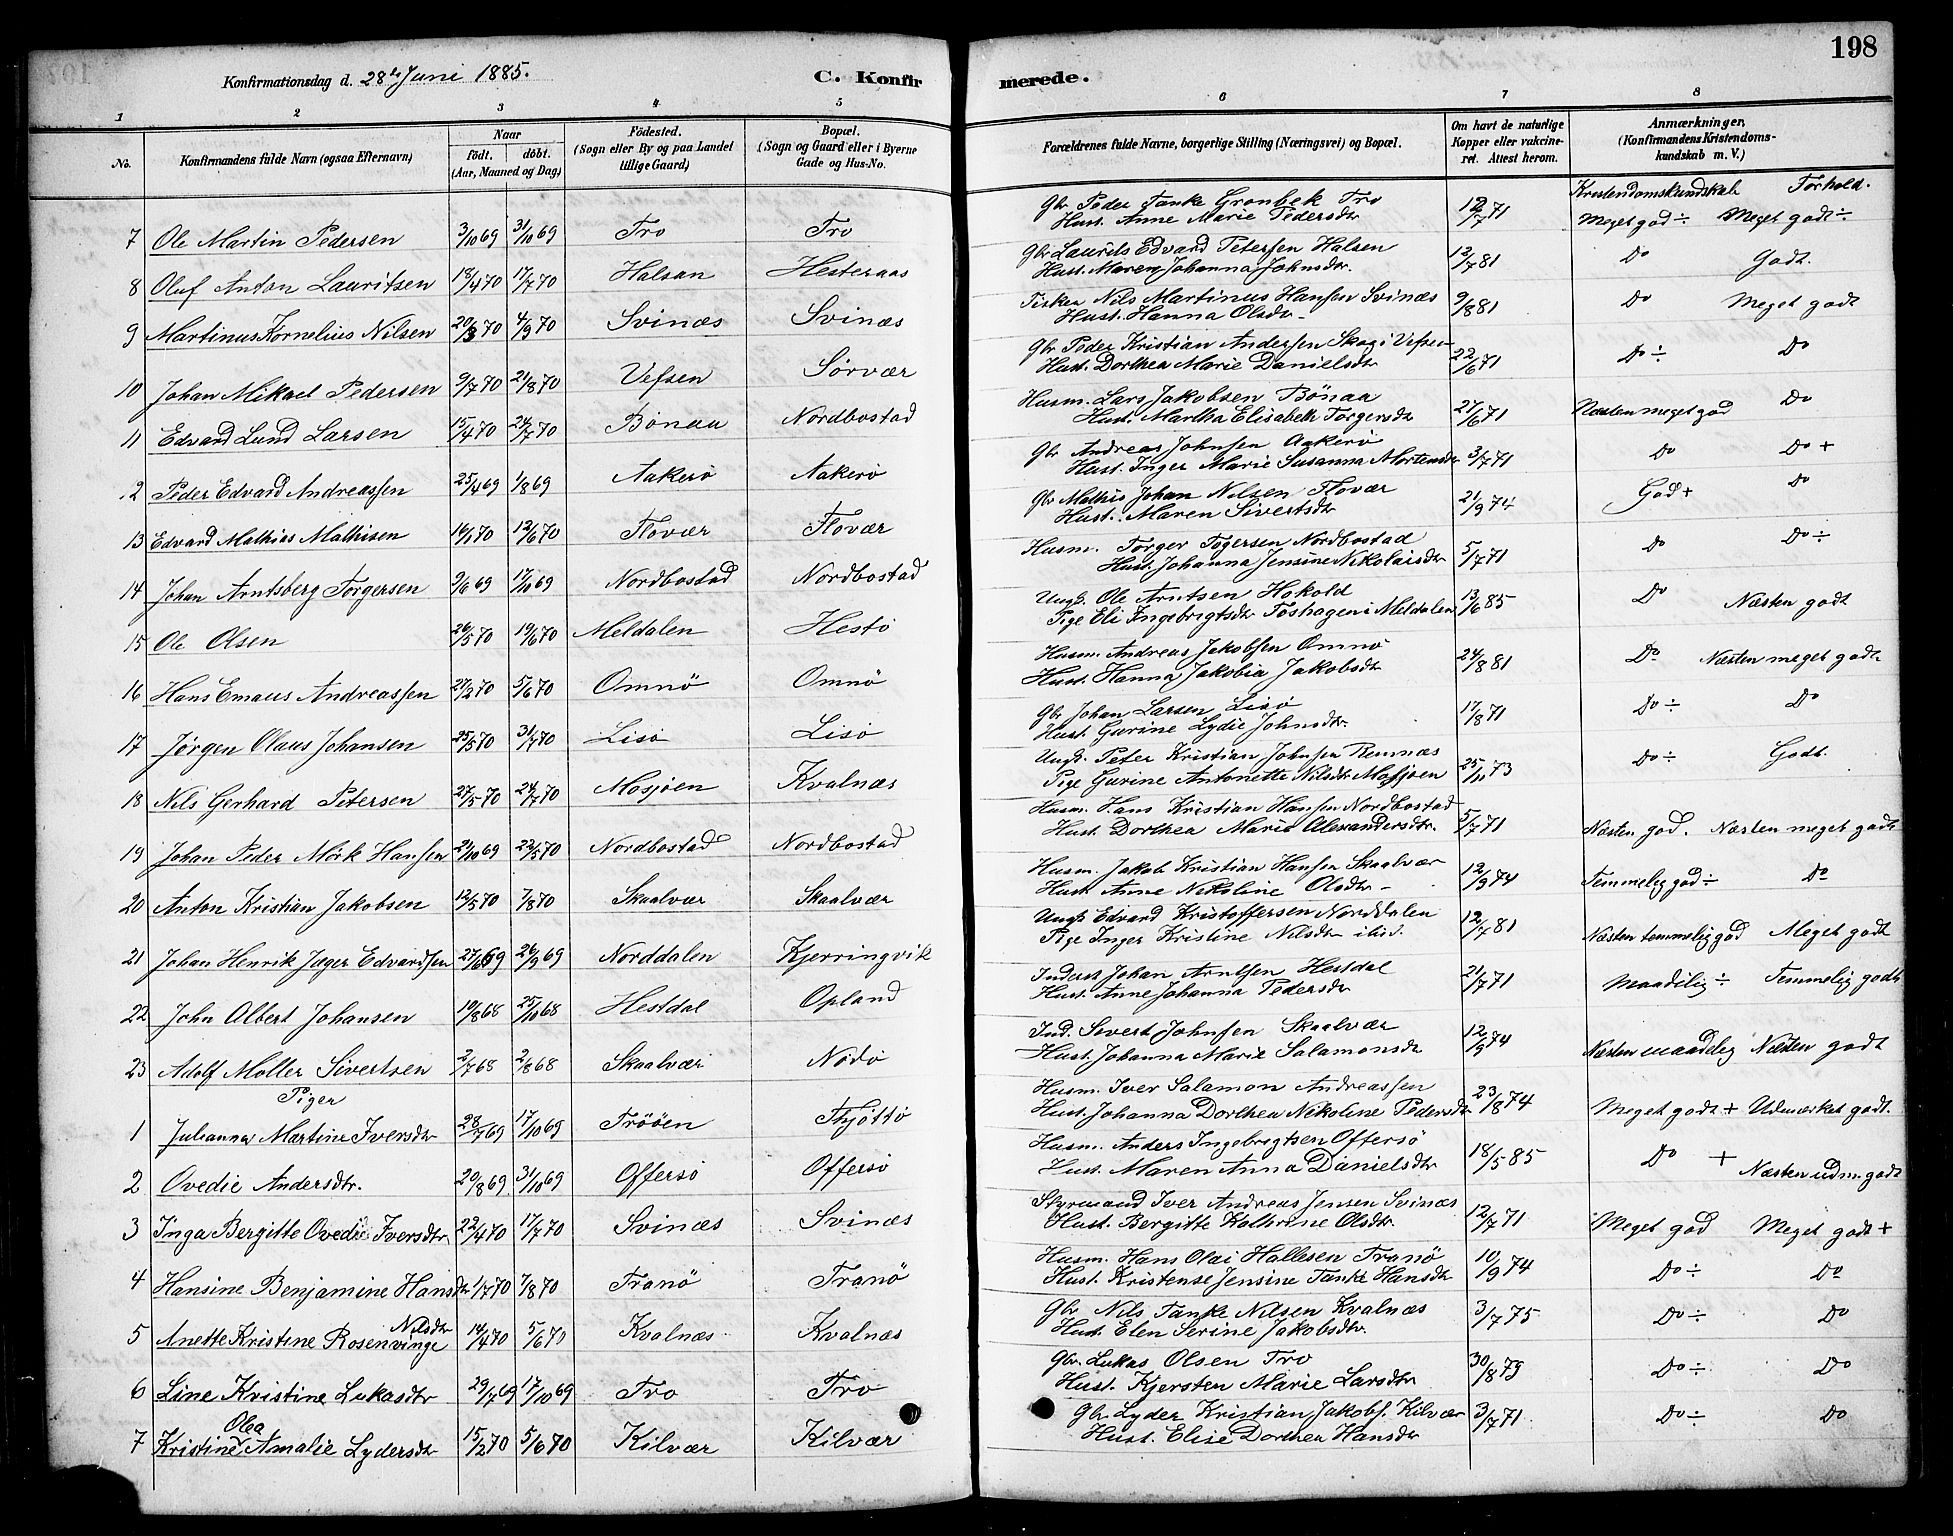 198
Konfirmationsdag d. 28de Juni 1885.
C. Konfirmerede.
1 2 3 4 5 6 7 8
No. Konfirmandens fulde Navn (ogsaa Efternavn) Naar födt. döbt. (Aar, Maaned og Dag) Födested. (Sogn eller By og paa Landet tillige Gaard) Bopæl. (Sogn og Gaard eller i Byerne Gade og Hus-No. Forældrenes fulde Navne, borgerlige Stilling (Næringsvei) og Bopæl. Om havt de naturlige Kopper eller vakcineret. Attest herom. Anmærkninger, (Konfirmandens Kristendomskundskab m. V.)
Kristendomskundskab Forhold.
7 Ole Martin Pedersen 3/10 69 31/10 69 Tro Tro Gbr Peder Tanke Grønbek Tro 12/7 71 Meget god ÷ Meget godt ÷
Hust. Anne Marie Pedersdtr
8 Oluf Anton Lauritsen 18/4 70 17/7 70 Halsan Hesteraas Gbr Laurits Edvard Petersen Halsen 12/7 81 Do Godt.
Hust. Maren Johanna Johnsdtr.
9 Martinus Kornelius Nilsen 20/3 70 4/9 70 Svinæs Svinæs Fisker Nils Martinus Hansen Svinæs 9/8 81 Do Meget godt
Hust. Hanna Olsdr -
10 Johan Mikael Pedersen 9/7 70 21/8 70 Vefsen Sørvær Gbr Peder Kristian Andersen Skog i Vefsen 22/6 71 Do ÷ Do
Hust. Dorthea Marie Danielsdtr
11 Edvard Lund Larsen 15/4 70 24/7 70 Bønaa Nordbostad Husm. Lars Jakobsen Bønaa 27/6 71 Næsten meget god Do
Hust. Martha Elisabeth Torgersdtr
.2 Peder Edvard Andreassen 25/4 69 1/8 69 Aakerø Aakerø Gbr Andreas Johnsen Aakerø 3/7 71 Do Do +
Hust. Inger Marie Susanna Mortensdtr
13 Edvard Mathias Mathisen 16/1 70 12/6 70 Flovær Flovær Gbr Mathis Johan Nilsen Flovær 21/9 74 God + Do
Hust. Maren Sivertsdtr
14 Johan Arntsberg Torgersen 9/6 69 17/10 69 Nordbostad Nordbostad Husm. Torger Togersen Nordbostad 5/7 71 Do Do ÷
Hust. Johanna Jensine Nikolaisdtr
15 Ole Olsen 26/5 70 19/6 70 Meldalen Hestø Ungk. Ole Arntsen Hokold 13/6 85 Do Næsten godt
Pige Eli Ingebrigtsdtr Toshagen i Meldalen
16 Hans Emaus Andreassen 27/2 70 5/6 70 Omnø Omnø Husm. Andreas Jakobsen Omnø 24/8 81 Do Næsten meget godt
Hust. Hanna Jakobia Jakobsdtr
17 Jørgen Olaus Johansen 25/5 70 31/7 70 Lisø Lisø Gbr Johan Larsen Lisø 17/8 71 Do ÷ Do
Hust. Gurine Lydie Johnsdtr.
18 Nils Gerhard Petersen 27/5 70 24/7 70 Mosjøen Kvalnæs Ungk. Peter Kristian Johnsen Remnæs 25/11 73 Do ÷ Godt
Pige Gurine Antonette Nilsdtr Mosjøen
19 Johan Peder Mørk Hansen 21/10 69 22/5 70 Nordbostad Nordbostad Husm. Hans Kristian Hansen Nordbostad 5/7 71 Næsten god. Næsten meget godt
Hust. Dorthea Marie Alexandersdtr.
20 Anton Kristian Jakobsen 12/5 70 7/8 70 Skaalvær Skaalvær Husm. Jakob Kristian Hansen Skaalvær 12/9 74 Temmelig god ÷ Do
Hust. Anne Nikoline Olsdtr -
21 Johan Henrik Jæger Edvardsen 27/6 69 26/9 69 Norddalen Kjerringvik Ungk Edvard Kristoffersen Norddalen 12/7 81 Næsten temmelig god Meget godt
Pige Inger Kristine Nilsdtr ibid.
22 John Albert Johansen 19/8 68 25/10 68 Hestdal Opland Inderst Johan Arntsen Hestdal 21/7 71 Maadelig ÷ Temmelig godt
Hust. Anne Johanna Pedersdtr
23 Adolf Moller Sivertsen 2/7 68 2/8 68 Skaalvær Nødø Ind. Sivert Johnsen Skaalvær 12/9 74 Næsten maadelig Næsten godt
Hust. Johanna Marie Salamonsdtr
Piger
1 Julianna Martine Iversdtr 28/7 69 17/10 69 Trøøen Thjøttø Husm. Iver Salamon Andreassen 23/8 74 Meget godt + Udmærket godt.
Hust. Johanna Dorthea Nikoline Pedersdtr
2 Ovedie Andersdtr. 20/8 69. 31/10 69 Offersø Offersø Husm. Anders Ingebrigtsen Offersø 18/5 85 Do + Næsten udm. godt
Hust. Maren Anna Danielsdtr
3 Inga Bergitte Ovedie Iversdtr 22/4 70 17/7 70 Svinæs Svinæs Styrmand Iver Andreas Jensen Svinæs 12/7 71 Meget god Meget godt +
Hust. Bergitte Kathrine Olsdtr.
4 Hansine Benjamine Hansdtr 1/7 70 7/8 70 Tranø Tranø Husm. Hans Olai Hallesen Tranø 10/9 74 Do ÷ Do
Hust. Kristense Jensine Tanke Hansdtr
5 Anette Kristine Rosenvinge Nilsdtr 14/4 70 5/6 70 Kvalnæs Kvalnæs Gbr Nils Tanke Nilsen Kvalnæs 3/7 75 Do ÷ Do
Hust. Elen Serine Jakobsdtr.
6 Line Kristine Lukasdtr 29/7 69 17/10 69 Tro Tro Gbr. Lukas Olsen Tro 30/8 79 Do ÷ Do
Hust. Kjersten Marie Larsdtr
7 Kristine Olea Amalie Lydersdtr 15/2 70 5/6 70 Kilvær Kilvær Gbr Lyder Kristian Jakobs. Kilvær 3/7 71. Do ÷ Do
Hust. Elise Dorthea Hansdtr